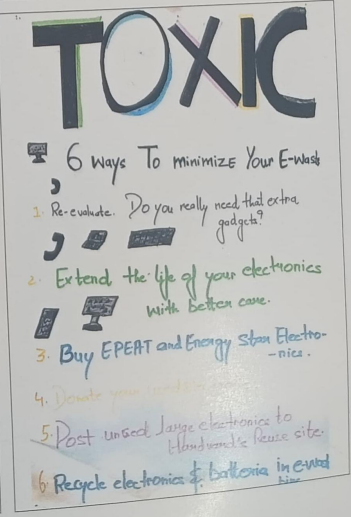 TOXIC
6 ways To minimize Your E-wast
1. Re-evaluate. Do you really need that extra
gadgets?
2. Extend the life of your electronics
with better care.
3. Buy EPEAT and Energy Star Electro-
-nics.
4. Donate your
5. Post unused large electronics to
Reuse site.
6. Recycle electronics & in